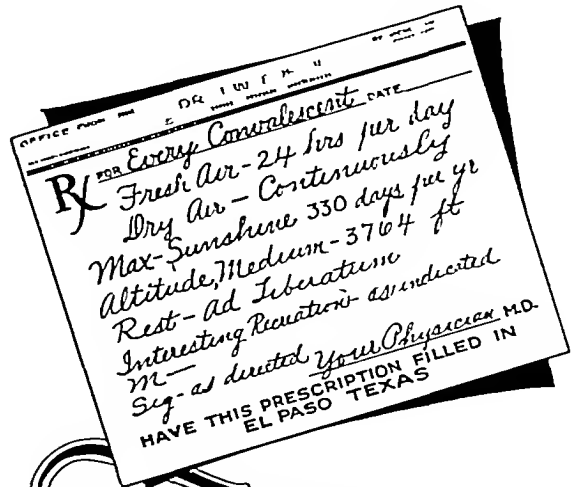 OFFICE
FOR Every Convalescent DATE
Rx Fresh Air - 24 hrs per day
Dry Air - Continuously
Max - Sunshine 330 days per yr
Altitude, Medium - 3764 ft
Rest - Ad Liberatum
Interesting Recreation - as indicated
M -
Sig - as directed Your Physician M.D.
HAVE THIS PRESCRIPTION FILLED IN
EL PASO TEXAS